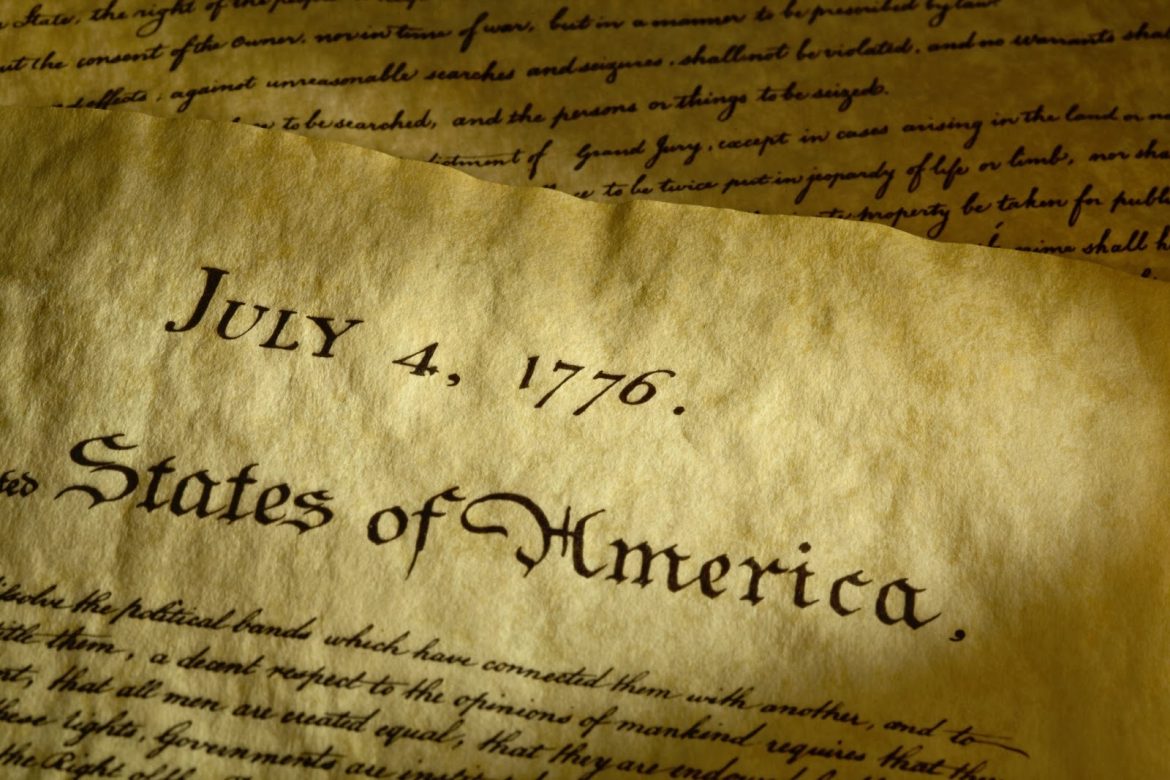 State, the right of the people
the consent of the Owner, nor in time of war, but in a manner to be prescribed by law.
effects, against unreasonable searches and seizures, shall not be violated, and no warrants sha
to be searched, and the persons or things to be seized.
dictment of Grand Jury, except in cases arising in the land or
to be twice put in jeopardy of life or limb, nor sha
property be taken for publ
crime shall h
JULY 4, 1776.
ted States of America,
issolve the political bands which have connected them with another, and to
them, a decent respect to the opinions of mankind requires that th
that all men are created equal, that they are endowed
these rights, Governments are
the Right of the